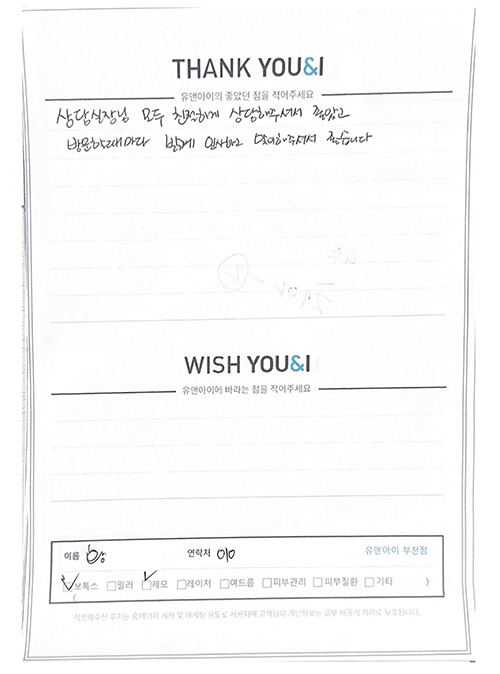 THANK YOU&I
유앤아이의 좋았던 점을 적어주세요
상담실장님 모두 친절하게 상담해주셔서 좋았고
방문할때마다 밝게 인사하고 맞이해주셔서 좋습니다
WISH YOU&I
유앤아이에 바라는 점을 적어주세요
이름 연락처 010 유앤아이 부천점
보톡스 필러 제모 레이저 여드름 피부관리 피부질환 기타 )
(
작성해주신 후기는 홈페이지 게재 및 마케팅 용도로 사용되며 고객님의 개인정보는 일부 비공개 처리로 보호됩니다.